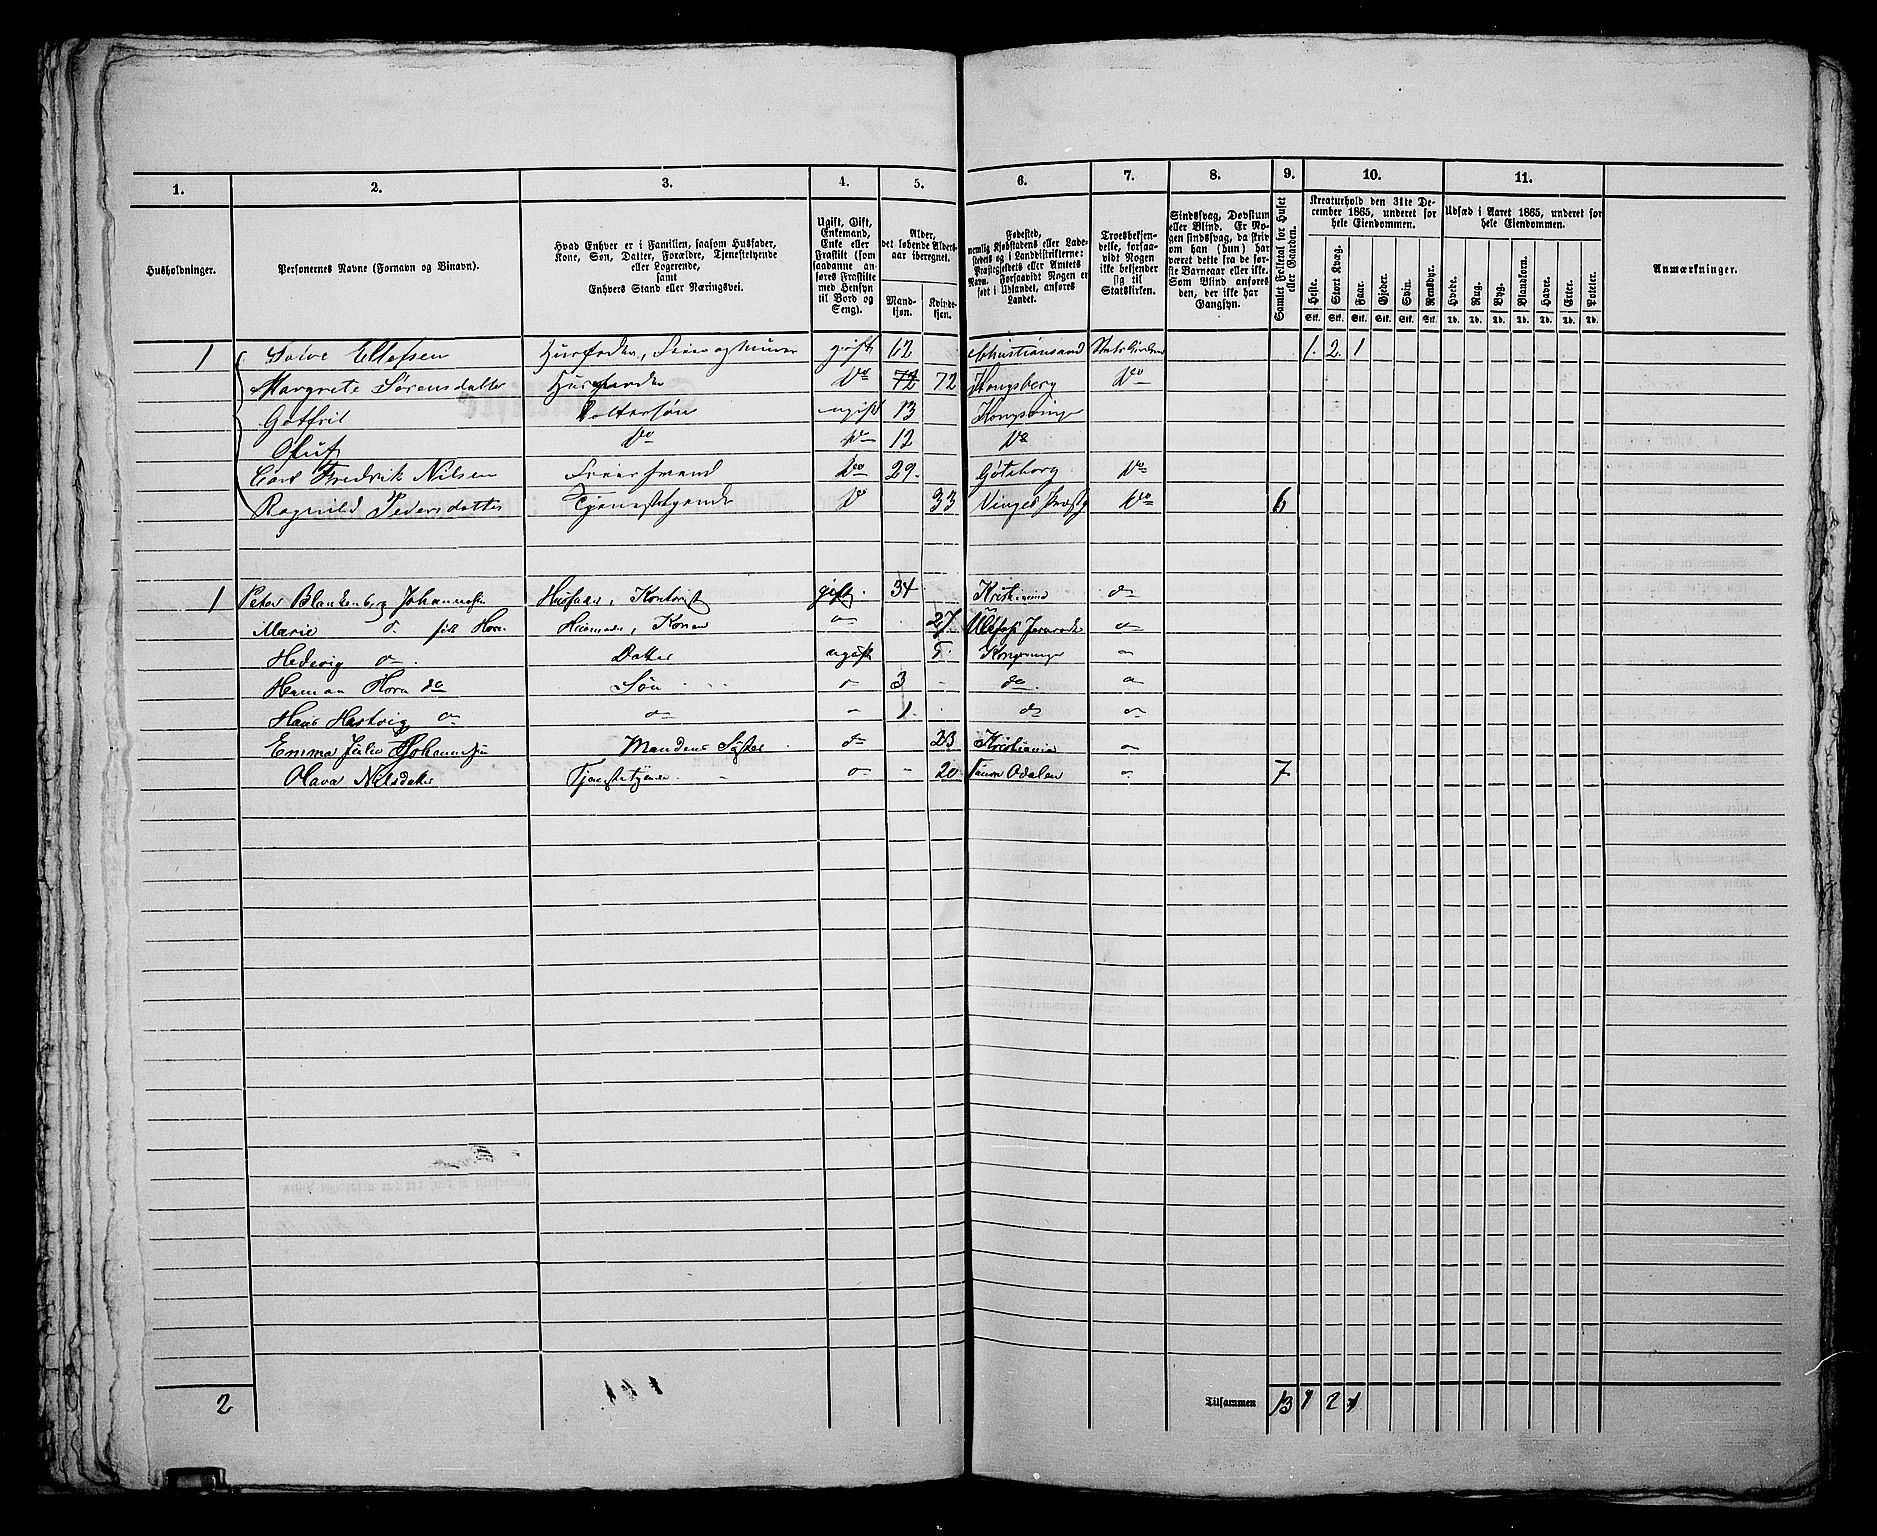 1. 2. 3. 4. 5. 6. 7. 8. 9. 10. 11.
Husholdninger.
Personernes Navne (Fornavn og Binavn).
Hvad Enhver er i Familien, saasom Husfader,
Kone, Søn, Datter, Forældre, Tjenestetyende
eller Logerende,
samt
Enhvers Stand eller Næringsvei.
Ugift, Gift,
Enkemand,
Enke eller
Fraskilt (som
saadanne an-
føres Fraskilte
med Hensyn
til Bord og
Seng).
Alder,
det løbende Alders-
aar iberegnet.
Mand-
kjøn.
Kvinde-
kjøn.
Fødested,
nemlig Kjøbstadens eller Lade-
stedets og i Landdistrikterne:
Præstegjeldets eller Amtets
Navn. Forsaavidt Nogen er
født i Udlandet, anføres
Landet.
Troesbekjen-
delse, forsaa-
vidt Nogen
ikke bekjender
sig til
Statskirken.
Sindssvag, Døvstum
eller Blind. Er No-
gen sindssvag, da skriv
om han (hun) har
været dette fra de før-
ste Barneaar eller ikke.
Som Blind anføres
den, der ikke har
Gangsyn.
Samlet Folketal for Huset
eller Gaarden.
Kreaturhold den 31te De-
cember 1865, underet for
hele Eiendommen.
Heste. Stort Kvæg. Faar. Gjeder. Svin. Rensdyr.
Stk. Stk. Stk. Stk. Stk. Stk.
Udsæd i Aaret 1865, underet for
hele Eiendommen.
Hvede. Rug. Byg. Blandkorn. Havre. Erter. Poteter.
Td. Td. Td. Td. Td. Td. Td.
Anmærkninger.
1 Ellefsen gift 62 Christiansand 1. 2. 1
Margrete Sørensdatter Do 72 72 Kongsberg Do
Gotfril Dattersøn ugift 13 Kongsvinger
Oluf Do Do 12 Do
Carl Fredrik Nilsen Feiersvend Do 29. Gøteborg Do
Ragnild Pedersdatter Tjenestetyende Do 33 Vinger Præstg Do 6
1 Peter Blankenberg Johannesen Husfader, Kontorist gift. 34 Kristiania do
Marie d. født Horn Husmoder, Kone do 27 do
Hedevig do. Datter ugift 5. Kongsvinger do
Herman Horn do Søn do 3 do. do
Hans Hartvig do do do 1. do do
Emma Julie Johannesen Mandens Søster do 23 Kristiania do
Olava Nilsdatter Tjenestetyende do 20 Odalen do 7
2 Tilsammen 13 1 2 1